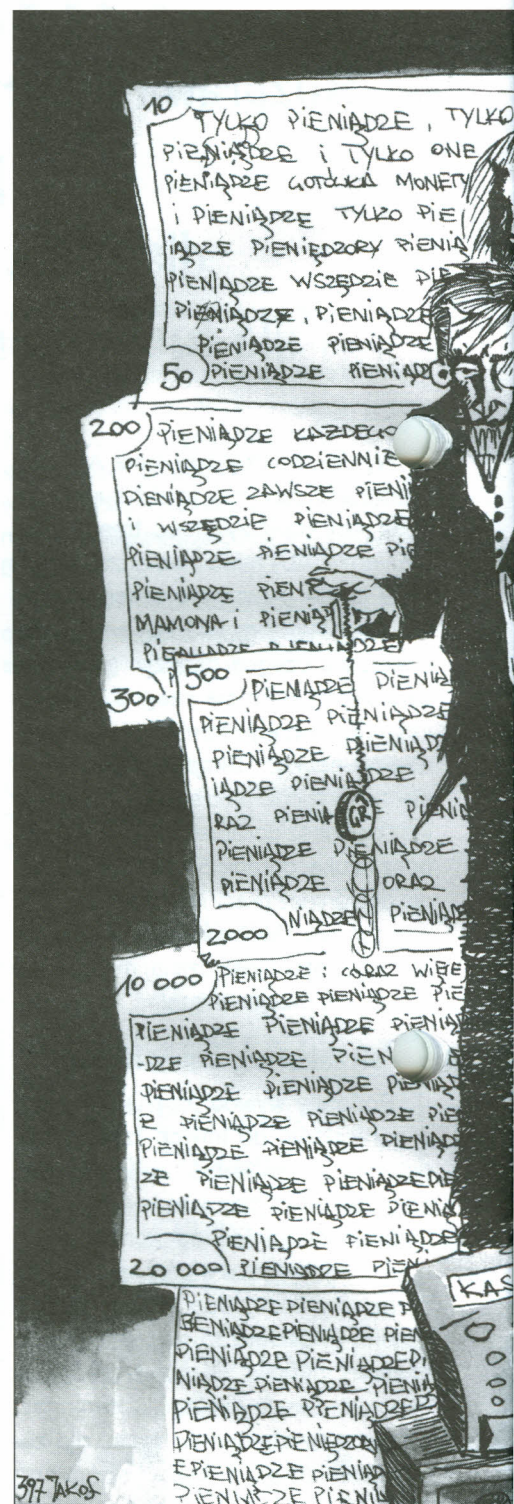 10
TYLKO PIENIĄDZE, TYLKO
PIENIĄDZE i TYLKO ONE
PIENIĄDZE GOTÓWKA MONETY
i PIENIĄDZE TYLKO PIE
iĄDZE PIENIĘDZORY PIENIĄ
PIENIĄDZE WSZĘDZIE PIE
PIENIĄDZE, PIENIĄDZE
PIENIĄDZE PIENIĄDZE
50 PIENIĄDZE PIENIĄDZ
200 PIENIĄDZE KAŻDEGO
PIENIĄDZE CODZIENNIE
PIENIĄDZE ZAWSZE PIENI
i WSZĘDZIE PIENIĄDZE
PIENIĄDZE PIENIĄDZE PIE
PIENIĄDZE PIEN
MAMONA i PIENIĄ
PIENIĄDZE PIENIĄDZE
300
500 PIENIĄDZE PIENIĄ
PIENIĄDZE PIENIĄDZE
PIENIĄDZE PIENIĄDZ
IĄDZE PIENIĄDZE
RAZ PIENIĄ E PIENIĄ
GR
PIENIĄDZE PIENIĄDZE
PIENIĄDZE ORAZ
NIĄDZEN PIENIĄDZE
2000
10 000 PIENIĄDZE i CORAZ WIĘCE
PIENIĄDZE PIENIĄDZE PIE
PIENIĄDZE PIENIĄDZE PIENIĄ
-DZE PIENIĄDZE PIEN
PIENIĄDZE PIENIĄDZE PIENIĄDZ
E PIENIĄDZE PIENIĄDZE PIE
PIENIĄDZE PIENIĄDZE PIENIĄDZ
ZE PIENIĄDZE PIENIĄDZE PIE
PIENIĄDZE PIENIĄDZE PIENIĄ
PIENIĄDZE PIENIĄDZE
20 000 PIENIĄDZE PIEN
KAS
PIENIĄDZE PIENIĄDZE P
PIENIĄDZE PIEN
PIENIĄDZE PIENIĄDZE PI
NIĄDZE PIENIĄDZE PIENIĄ
PIENIĄDZE PIENIĄDZE
PIENIĄDZE PIENIĘDZORY
E PIENIĄDZE PIENIĄD
PIENIĄDZE PIENIĄ
397 JAKOS